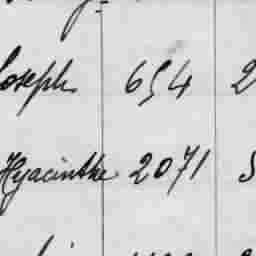 Joseph 654 2
Hyacinthe 2071 5